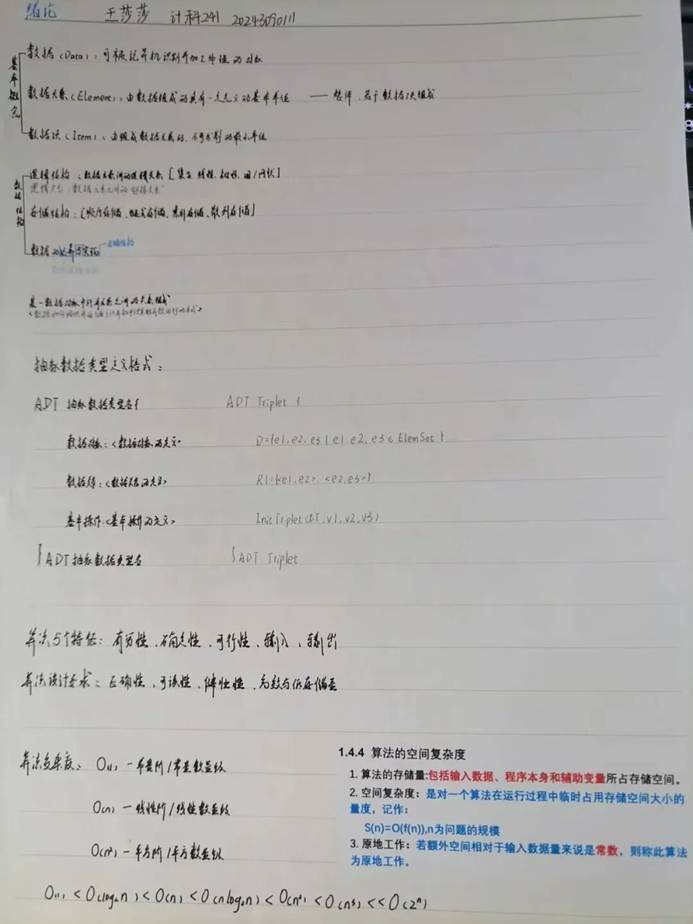 绪论 王莎莎 计科241 20243090111
基本概念
数据(Data):可被计算机识别并加工处理的对象
数据元素(Element):由数据组成的具有一定意义的基本单位 —— 整体,若干数据项组成
数据项(Item):由组成数据元素的、不可分割的最小单位
数据结构
逻辑结构:数据元素间的逻辑关系[集合、线性、树形、图/网状]
逻辑 数据元素之间的 关系
存储结构:[顺序存储、链式存储、索引存储、散列存储]
数据
抽象数据类型定义格式:
ADT 抽象数据类型名{ ADT Triplet {
数据对象:<数据对象的定义> D={e1,e2,e3 | e1,e2,e3 ∈ ElemSet}
数据关系:<数据关系的定义> R1={<e1,e2>,<e2,e3>}
基本操作:<基本操作的定义> InitTriplet(&T,v1,v2,v3)
}ADT 抽象数据类型名 }ADT Triplet
算法5个特征:有穷性、确定性、可行性、输入、输出
算法设计要求:正确性、可读性、健壮性、高效与低存储量
算法复杂度:O(1) —常量阶/常量数量级
O(n) —线性阶/线性数量级
O(n²) —平方阶/平方数量级
O(1) < O(log₂n) < O(n) < O(nlog₂n) < O(n²) < O(n³) << O(2ⁿ)
1.4.4 算法的空间复杂度
1. 算法的存储量:包括输入数据、程序本身和辅助变量所占存储空间。
2. 空间复杂度:是对一个算法在运行过程中临时占用存储空间大小的
量度,记作:
S(n)=O(f(n)),n为问题的规模
3. 原地工作:若额外空间相对于输入数据量来说是常数,则称此算法
为原地工作。